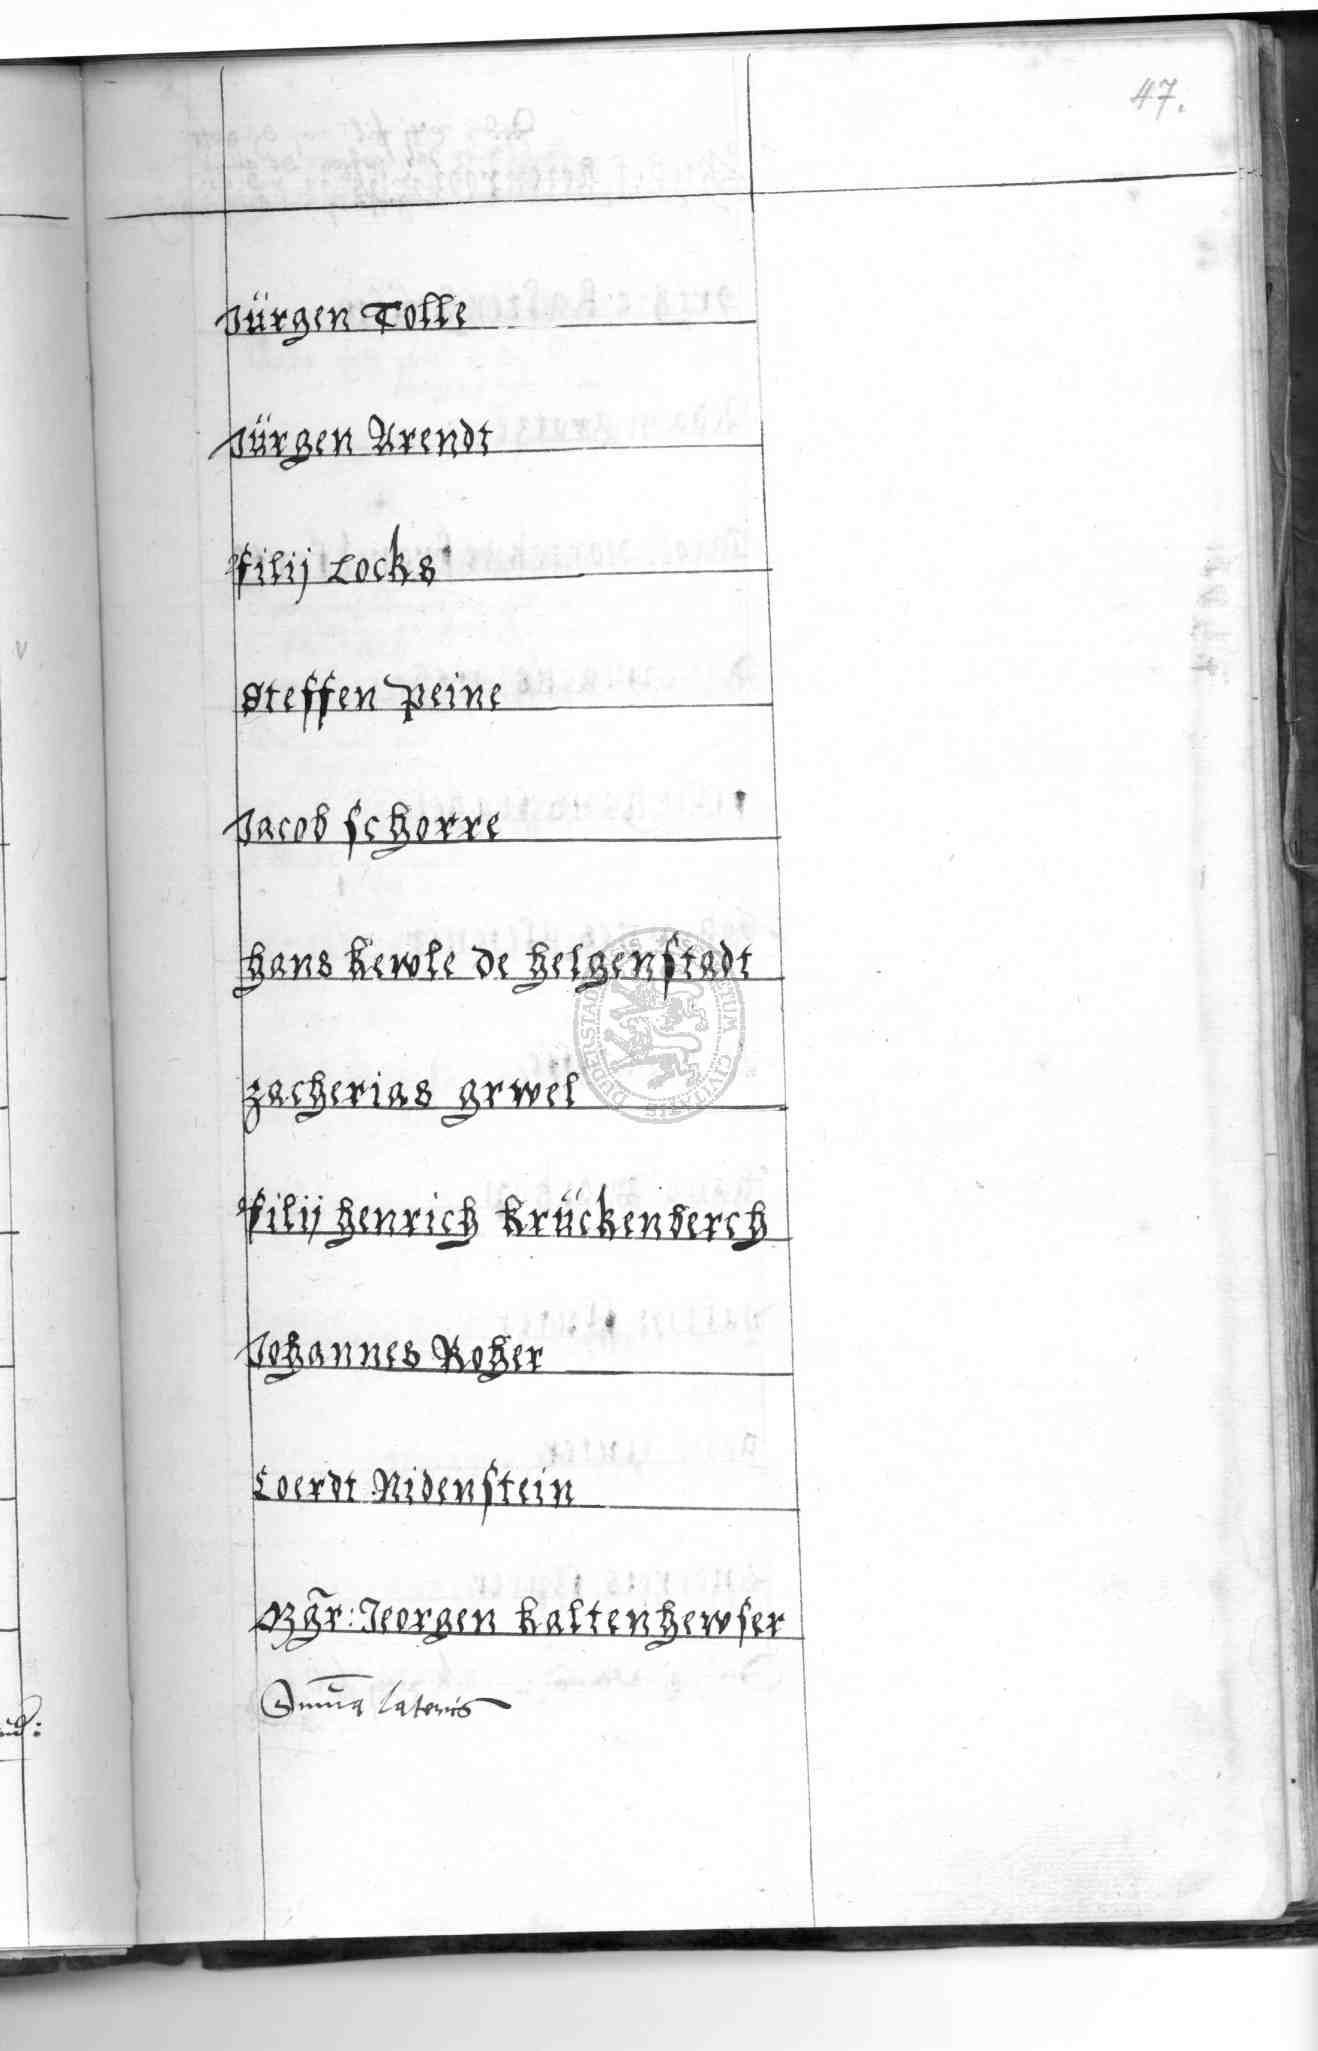 47.
Jürgen Tolle
Jürgen Arendt
filij Locks
Steffen Peine
Jacob schorre
hans kewle de helgenstadt
zacherias grwel
filij henrich krückenberch
Johannes Roher
Coerdt Nidenstein
Mgr̃: Jeorgen kaltenhewser
Sum̃a lateris
DUDERSTAD CIVITATIS